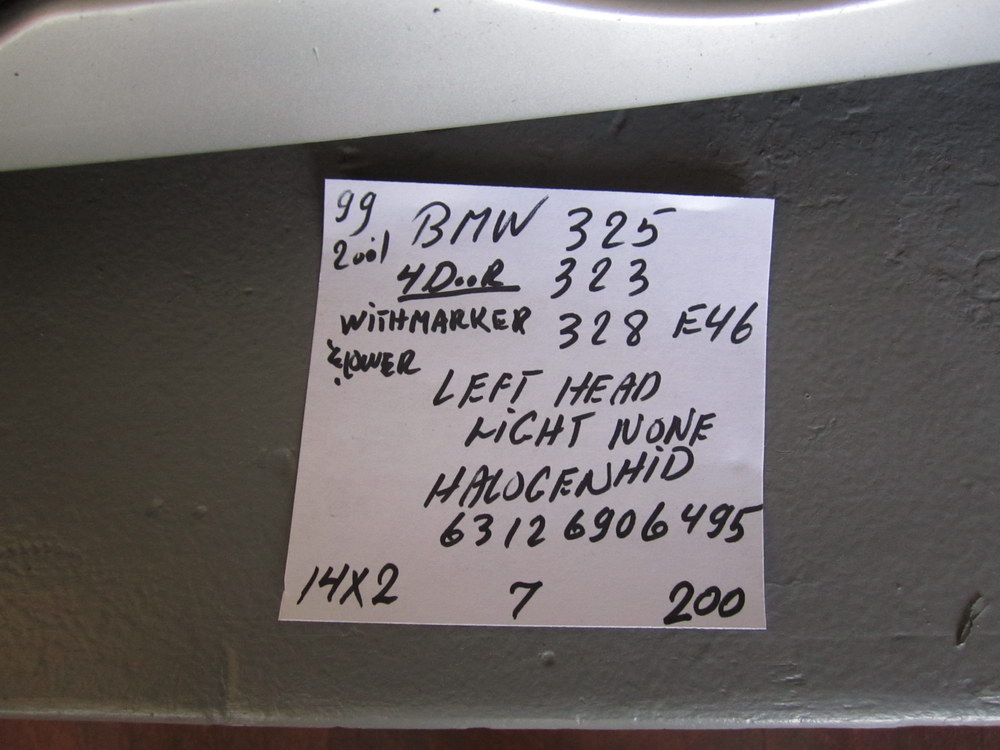 99 BMW 325
2001
4DooR 323
WiTHMARKER 328 E46
& LOWER
LEFT HEAD
LiGHT NONE
HALOGENHiD
63126906495
14X2 7 200